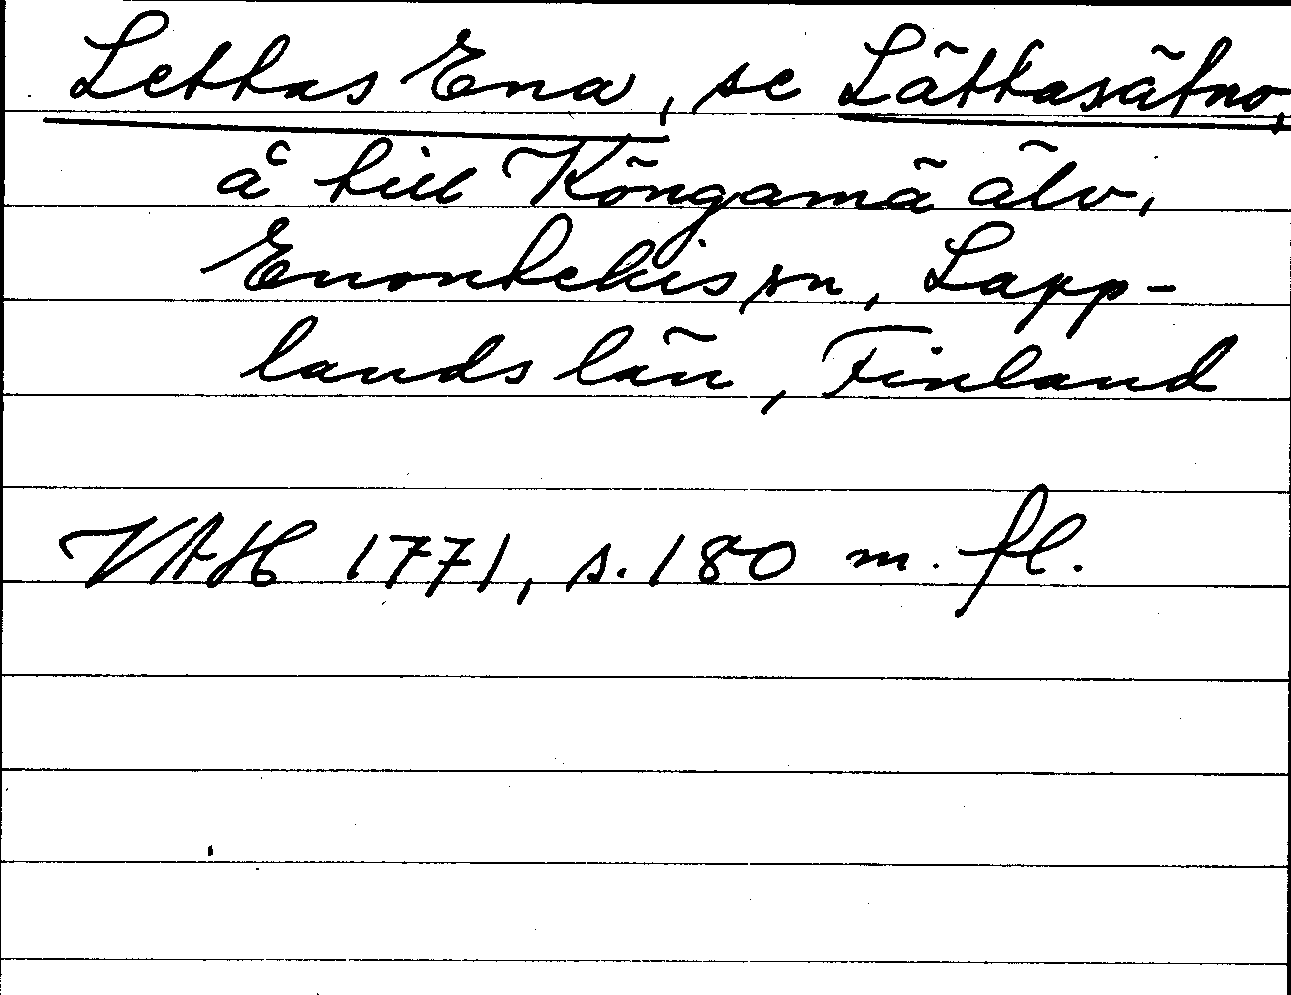 Lettas Ena, se Lättasätno,
å till Köngamä älv,
Enontekis sn, Lapp-
lands län, Finland
VAH 1771, s. 180 m. fl.